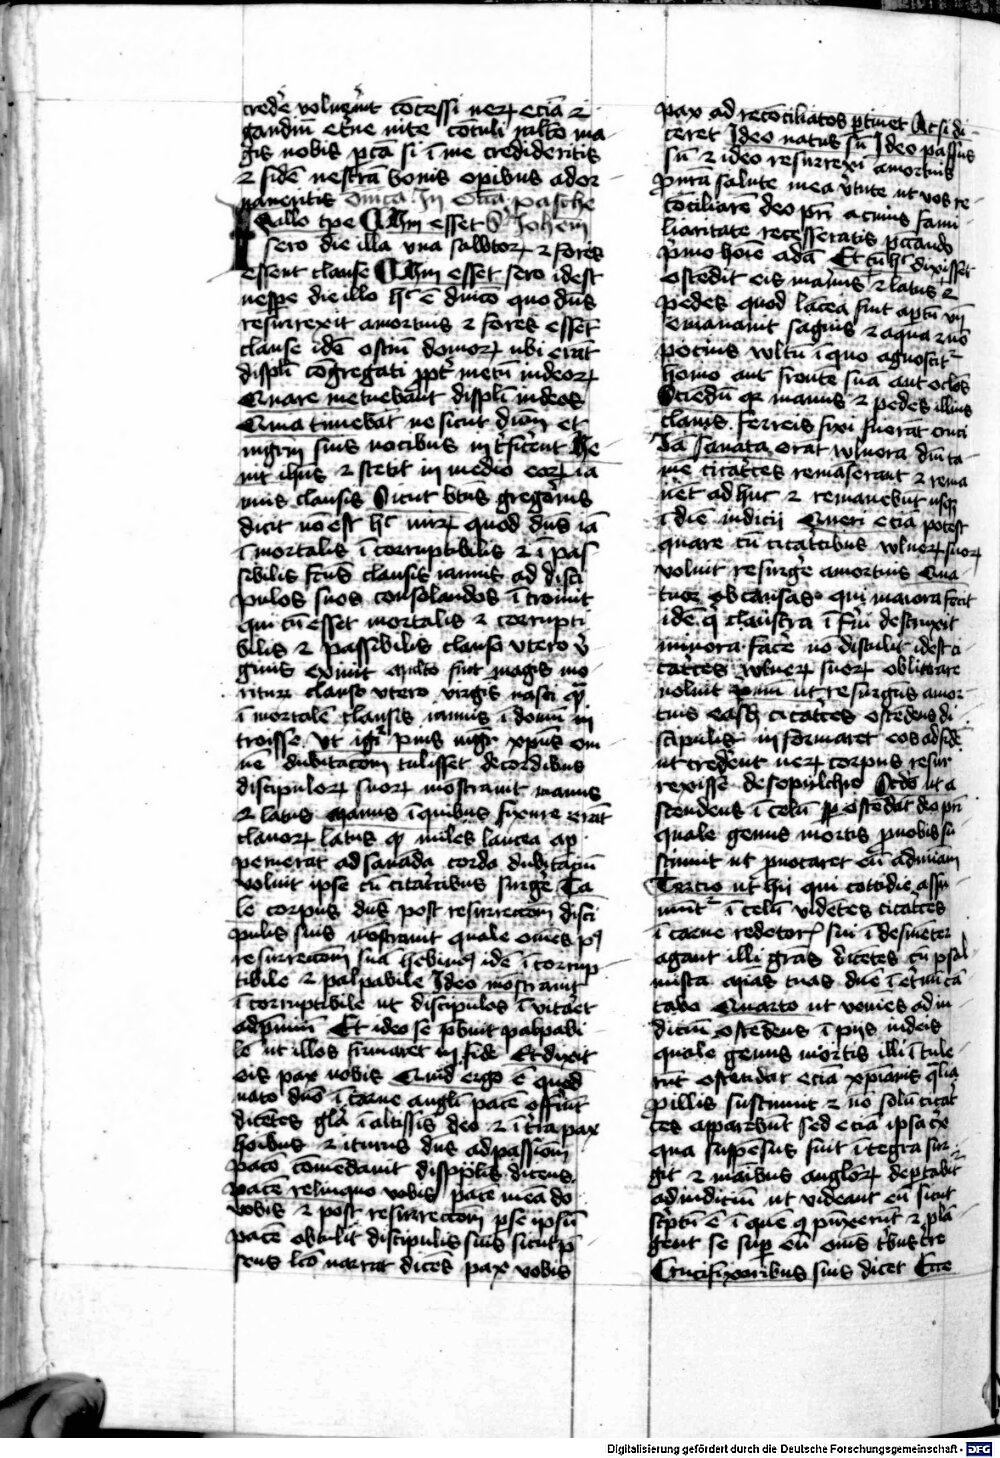 crede voluerit cōcessi uerꝝ eciā ⁊
gaudiū et̄ne uite cōtuli multo ma
gis nobis p̄ctā si ī me credideritis
⁊ fidē nestrā bonis opibus ador
naueritis Oct̄a pasche
illo tp̄e Cū esset Joh̄em
sero die illa vna sabbtoꝝ ⁊ fores
essent clause Cū esset sero idest
uesp̄e die illo h̄c ē dn̄ico quo dn̄s
resurrexit amortuis ⁊ fores esse͞t
clause idē ostiū domoꝝ ubi erāt
displi cōgregati ꝓpt̄ metū iudeoꝝ
Quare metuebāt displi iudeos
Quia timebāt ne sicut dn̄m et
mgr̄m suis uocibus int̄ficerent Ve
nit ih̄us ⁊ stetit in medio eoꝝ ia
nuis clausis Sicut bt̄us gregōrius
dicit nō est h̄c mirꝝ quod dn̄s iā
ī mortalis ī corruptibilis ⁊ ī pas
sibilis fc̄us clausis ianuis ad disci
pulos suos consolandos ītrouit
qui cū esset mortalis ⁊ corrupti
bilis ⁊ passibilis clauso utero v̄
ginis exiuit multo fuit magis mo
rituꝝ clauso vtero v̄rgis nasci qͣ̄
ī mortalē clausis ianuis ī domū in
troisse Vt igit̄ pius mgr̄ xp̄us om
ne dubitacōm tulisset decordibus
discipuloꝝ suoꝝ mōstrauit manus
⁊ latus manus īquibus fixure erāt
clauoꝝ latus qͩ miles lancea ap
peruerat ad sanāda corda dubitaciū
voluit ipse cū citatricibus surge Ta
le corpus dn̄s post resurrectōm disci
pulis suis mōstrauit quale om̄es pꝰ
resurrectōm suā hebimꝰ idē ī corrup
tibile ⁊ palpabile Ideo mōstrauit
ī corruptibile ut discipulos ī vitaret
adp̄miū Et ideo se p̄buit palpabi
le ut illos firmaret in fide Et dixit
eis pax uobis Quid ergo ē quod
nato dn̄o ī carne angl̄i pacē offerūt
dicētes gl̄a ī altissis deo ⁊ ī t̄ra pax
hoībus ⁊ iturus dn̄s ad passiōm
pacē cōmēdauit displis dicens
pacē relinquo vobis pacē meā do
vobis ⁊ post resurrectōm pse ipsū
pacē obtulit discipulis suis sicut p̄
sens lc̄o narrat dicēs pax vobis
pax ad recōciliatos ꝑtinet Ac si di
ceret Ideo natus sū Ideo passus
sū ⁊ ideo resurrexi amortuis
salute mea v̄tute ut vos re
cōciliarē deo pr̄i a cuius fami
liaritate recesseratis peccando
p̄mo hoīe adā Et cū h̄c dixisset
ostēdit eis manus ⁊ latus ⁊
pedes quod lācea fuit aptū vn̄
emanauit saguis ⁊ aqua ⁊ nō
pocius vultū ī quo agnoscit᷑
homo aut frontē suā aut oc̄los
Sciēdū qͬ manus ⁊ pedes illius
clauis ferreis fixi fuerāt cruci
Iā sanata erāt vulnera dū ta
mē citatrices remaserant ⁊ rema
nēt ad huc ⁊ remanebūt usqꝫ
ī diē iudicii Queri eciā potest
quare cū citatricibus vulneꝝ suoꝝ
voluit resurḡe amortuis Qua
tuor ob causas qui maiora fecit
idē qͥ claustra ī fn̄i destruxit
minora face nō distulit idest ci
catrices vulneꝝ suoꝝ oblit̄are
noluit primū ut resurgēs amor
tuis easdē cicatrices ostēdens di
scipulis informaret eos ad fidē
ut crederēt ueꝝ corpus resur
rexisse desepulchro Scdo ut a
scendens ī celū ostēdat deo pr̄i
quale genus mortis ꝓ nobis su
stinuit ut ꝓuocaret eū ad miām
Tercio ut hii qui cotidie assu
munt᷑ ī celū vidētes cicatrices
ī carne redētoꝝ sui ī desinēter
agant illi gras dicētes cū psal
mista mīas tuas dn̄e ī et̄nū cā
tabo Quarto ut ueniēs ad iu
diciū ostēdens ī piis iudeis
quale genus mortis illi ītule
rūt ostēdat eciā xp̄ianis qͣlia
ꝓ illis sustinuit ⁊ nō solū citat̄
ces apparebūt sed eciā ipsa cͬx
qua suspensus fuit ītegra sur
git ⁊ manibus angloꝝ deportabit᷑
ad iudiciū ut videant eū sicut
scͥptū ē ī quē qͥ pūxerūt ⁊ plā
gent se sup eū om̄s tͥbus t̄re
Crucifixoribus suis dicet Ecce
Digitalisierung gefördert durch die Deutsche Forschungsgemeinschaft - DFG